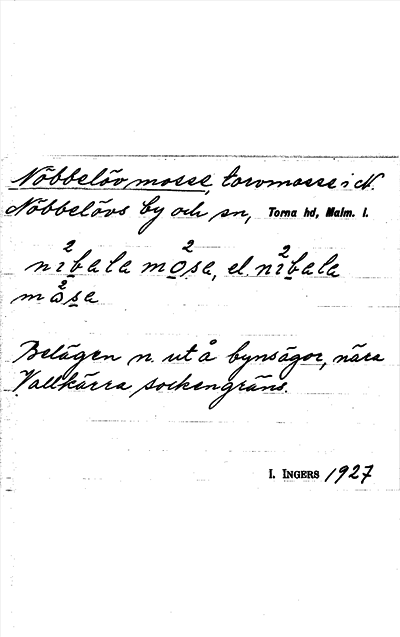 Nöbbelöv mosse, torvmosse i N.
Nöbbelövs by och sn, Torna hd, Malm. l.
nibala mosa, el. nibala
måsa
Belägen n. ut å bynsägor, nära
Vallkärra sockengräns.
I. INGERS 1927